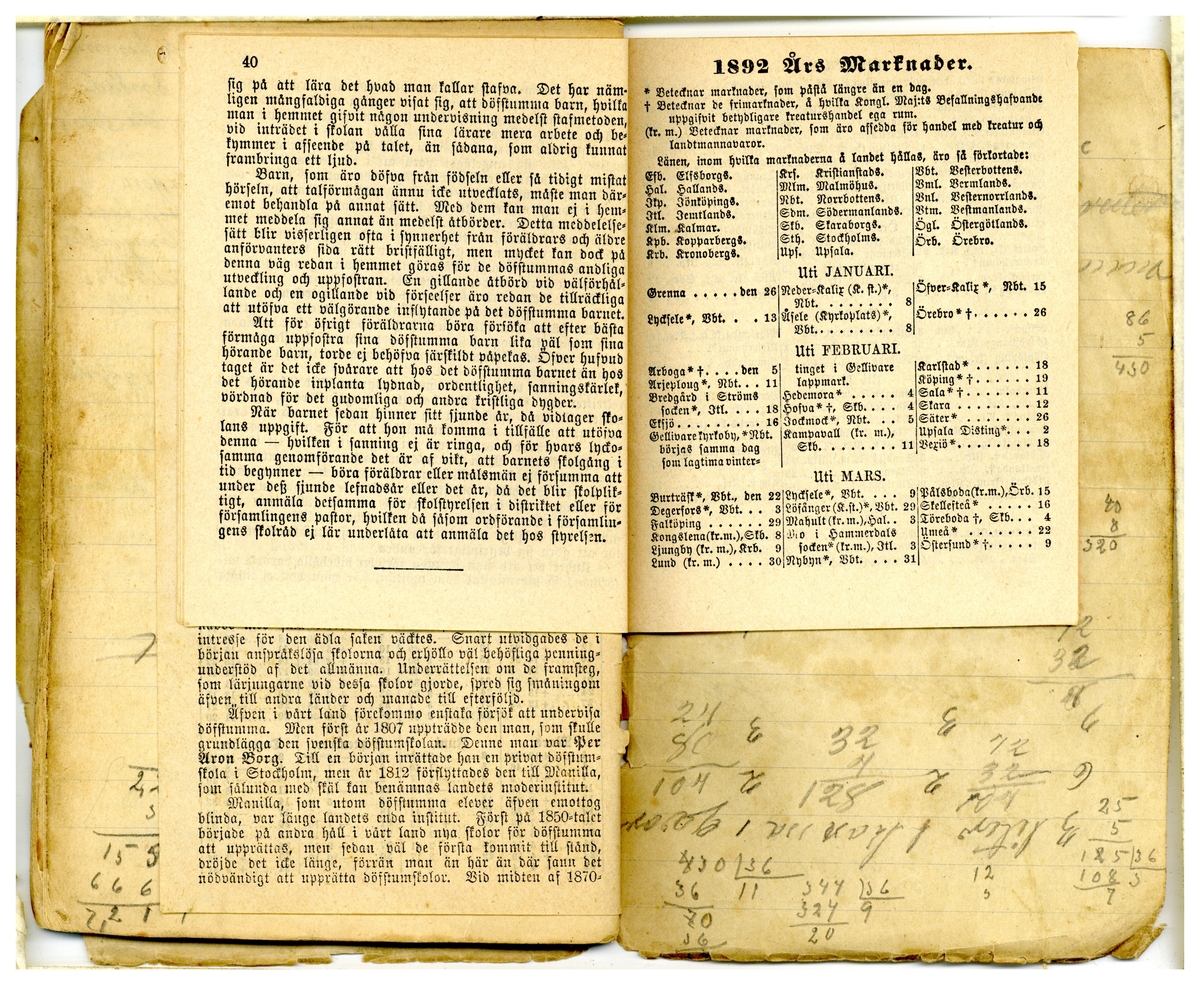 40
sig på att lära det hvad man kallar stafva. Det har näm-
ligen mångfaldiga gånger visat sig, att döfstumma barn, hvilka
man i hemmet gifvit någon undervisning medelst stafmetoden,
vid inträdet i skolan vålla sina lärare mera arbete och be-
kymmer i afseende på talet, än sådana, som aldrig kunnat
frambringa ett ljud.
Barn, som äro döfva från födseln eller så tidigt mistat
hörseln, att talförmågan ännu icke utvecklats, måste man där-
emot behandla på annat sätt. Med dem kan man ej i hem-
met meddela sig annat än medelst åtbörder. Detta meddelelse-
sätt blir visserligen ofta i synnerhet från föräldrars och äldre
anförvanters sida rätt bristfälligt, men mycket kan dock på
denna väg redan i hemmet göras för de döfstummas andliga
utveckling och uppfostran. En gillande åtbörd vid välförhål-
lande och en ogillande vid förseelser äro redan de tillräckliga
att utöfva ett välgörande inflytande på det döfstumma barnet.
Att för öfrigt föräldrarna böra försöka att efter bästa
förmåga uppfostra sina döfstumma barn lika väl som sina
hörande barn, torde ej behöfva särskildt påpekas. Öfver hufvud
taget är det icke svårare att hos det döfstumma barnet än hos
det hörande inplanta lydnad, ordentlighet, sanningskärlek,
vördnad för det gudomliga och andra kristliga dygder.
När barnet sedan hinner sitt sjunde år, då vidtager sko-
lans uppgift. För att hon må komma i tillfälle att utöfva
denna — hvilken i sanning ej är ringa, och för hvars lycko-
samma genomförande det är af vikt, att barnets skolgång i
tid begynner — böra föräldrar eller målsmän ej försumma att
under deß sjunde lefnadsår eller det år, då det blir skolplik-
tigt, anmäla detsamma för skolstyrelsen i distriktet eller för
församlingens pastor, hvilken då såsom ordförande i församlin-
gens skolråd ej lär underlåta att anmäla det hos styrelsen.
intresse för den ädla saken väcktes. Snart utvidgades de i
början anspråkslösa skolorna och erhöllo väl behöfliga penning-
understöd af det allmänna. Underrättelsen om de framsteg,
som lärjungarne vid dessa skolor gjorde, spred sig småningom
äfven till andra länder och manade till efterföljd.
Äfven i vårt land förekommo enstaka försök att undervisa
döfstumma. Men först år 1807 uppträdde den man, som skulle
grundlägga den svenska döfstumskolan. Denne man var Per
Aron Borg. Till en början inrättade han en privat döfstum-
skola i Stockholm, men år 1812 förflyttades den till Manilla,
som sålunda med skäl kan benämnas landets moderinstitut.
Manilla, som utom döfstumma elever äfven emottog
blinda, var länge landets enda institut. Först på 1850-talet
började på andra håll i vårt land nya skolor för döfstumma
att upprättas, men sedan väl de första kommit till stånd,
dröjde det icke länge, förrän man än här än där fann det
nödvändigt att upprätta döfstumskolor. Vid midten af 1870-
1892 Års Marknader.
* Betecknar marknader, som påstå längre än en dag.
† Betecknar de frimarknader, å hvilka Kongl. Maj:ts Befallningshafvande
uppgifvit betydligare kreaturshandel ega rum.
(kr. m.) Betecknar marknader, som äro afsedda för handel med kreatur och
landtmannavaror.
Länen, inom hvilka marknaderna å landet hållas, äro så förkortade:
Efb. Elfsborgs.
Hal. Hallands.
Jkp. Jönköpings.
Jtl. Jemtlands.
Klm. Kalmar.
Kpb. Kopparbergs.
Krb. Kronobergs.
Krs. Kristianstads.
Mlm. Malmöhus.
Nbt. Norrbottens.
Sdm. Södermanlands.
Skb. Skaraborgs.
Sth. Stockholms.
Ups. Upsala.
Vbt. Vesterbottens.
Vml. Vermlands.
Vnl. Vesternorrlands.
Vtm. Vestmanlands.
Ögl. Östergötlands.
Örb. Örebro.
Uti JANUARI.
Grenna . . . . . den 26
Lycksele*, Vbt. . . 13
Neder-Kalix (K. st.)*,
Nbt. . . . . . . . 8
Åsele (Kyrkoplats)*,
Vbt. . . . . . . . 8
Öfver-Kalix*, Nbt. 15
Örebro*† . . . . . . 26
Uti FEBRUARI.
Arboga*† . . . . den 5
Arjeploug*, Nbt. . . 11
Bredgård i Ströms
socken*, Jtl. . . . 18
Eksjö . . . . . . . . 16
Gellivare kyrkoby,*Nbt.
börjas samma dag
som lagtima vinter-
tinget i Gellivare
lappmark.
Hedemora* . . . . . 4
Hofva*†, Skb. . . . 4
Jockmock*, Nbt. . . 5
Kampavall (kr. m.),
Skb. . . . . . . . 11
Karlstad* . . . . . . 18
Köping*† . . . . . . 19
Sala*† . . . . . . . 11
Skara . . . . . . . . 12
Säter* . . . . . . . 26
Upsala Disting* . . . 2
Vexiö* . . . . . . . 18
Uti MARS.
Burträsk*, Vbt., den 22
Degerfors*, Vbt. . . 3
Falköping . . . . . . 29
Kongslena(kr.m.),Skb. 8
Ljungby (kr. m.), Krb. 9
Lund (kr. m.) . . . . 30
Lycksele*, Vbt. . . . 9
Löfånger (K.st.)*, Vbt. 29
Mahult (kr.m.),Hal. . 3
Mo i Hammerdals
socken*(kr.m.), Jtl. 3
Nybyn*, Vbt. . . . 31
Pålsboda(kr.m.),Örb. 15
Skellefteå* . . . . . 16
Töreboda†, Skb. . . 4
Umeå* . . . . . . . 22
Östersund*† . . . . . 9
86
5
430
40
8
320
12
32
25
5
125 36
108 3
7
12
3
430 36
36 11
70
36
344 36
324 9
20
15 3
6 6 6